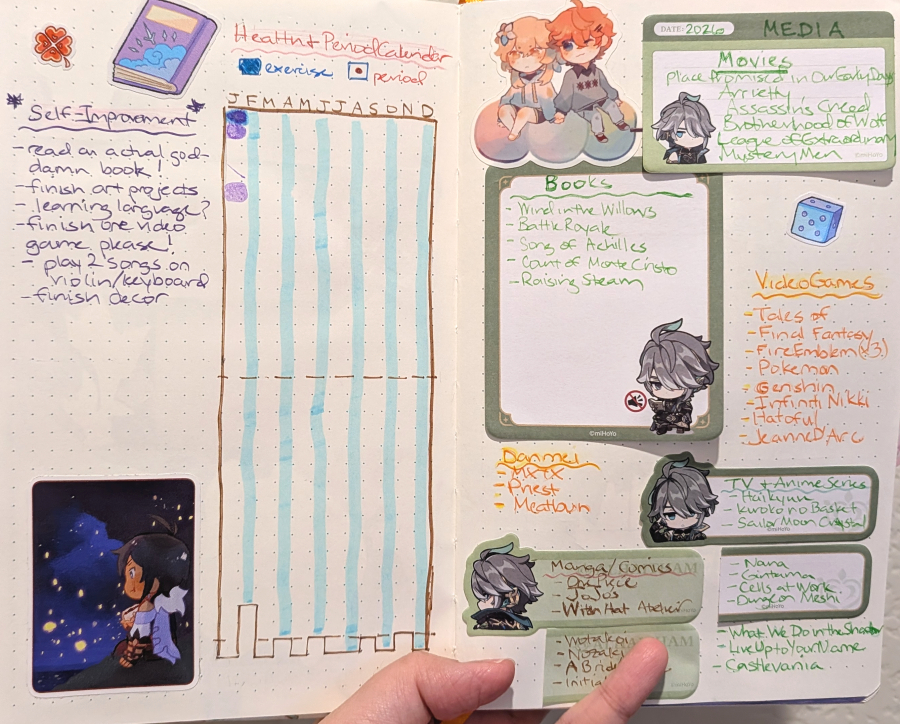 Health & Period Calendar
exercise
period
J F M A M J J A S O N D
Self-Improvement
- read an actual god-
damn book!
- finish art projects
- learning language?
- finish one video
game please!
- play 2 songs on
violin/keyboard
- finish decor
DATE: 2026
MEDIA
Movies
place promised in Our Early Days
Arrietty
Assassin's Creed
Brotherhood of Wolf
League of Extraordinary
Mystery Men
©miHoYo
Books
- Wind in the Willows
- Battle Royale
- Song of Achilles
- Count of Monte Cristo
- Raising Steam
©miHoYo
Video Games
- Tales of
- Final Fantasy
- Fire Emblem (x3)
- Pokemon
- Genshin
- Infiniti Nikki
- Hatoful
- Jeanne D'Arc
Danmei
- MXTX
- Priest
- Meatbun
TV + Anime Series
- Haikyuu
- Kuroko no Basket
- Sailor Moon Crystal
©miHoYo
- Nana
- Gintama
- Cells at Work
- Dungeon Meshi
©miHoYo
- What We Do in the Shadow
- Live Up to Your Name
- Castlevania
Manga/Comics
- One Piece
- JoJos
- Witch Hat Atelier
- Wotakoi
- Nozaki
- A Bride
- Initial